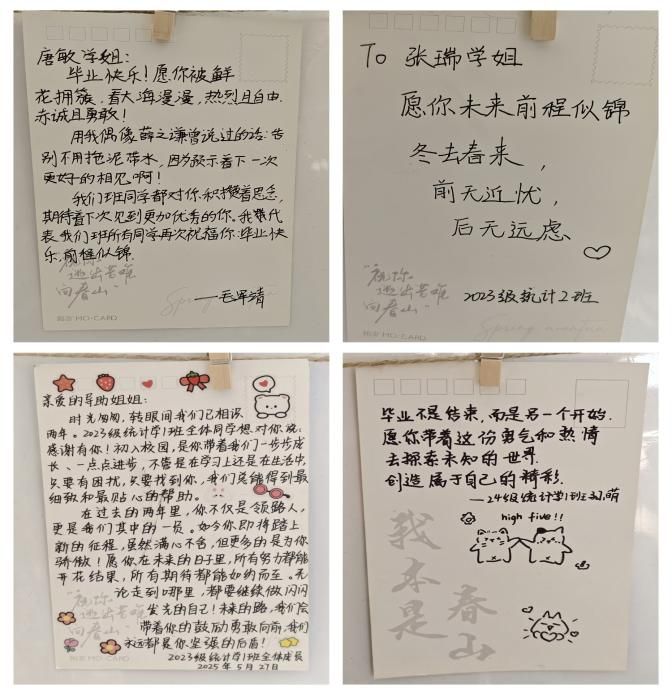 唐敏学姐:
毕业快乐!愿你被鲜
花拥簇,看大海漫漫,热烈且自由.
赤诚且勇敢!
用我偶像薛之谦曾说过的话:告
别不用拖泥带水,因为预示着下一次
更好的相见啊!
我们班同学都对你积攒着思念,
期待着下次见到更加优秀的你。我代
表我们班所有同学再次祝福你:毕业快
乐,前程似锦.
“祝你
逃出苦难
向春山”
——毛浑靖
MO·CARD
To 张瑞学姐
愿你未来前程似锦
冬去春来,
前无近忧,
后无远虑
“祝你
逃出苦难
向春山”
2023级统计2班
MO·CARD
亲爱的导助姐姐:
时光匆匆,转眼间我们已相识
两年。2023级统计学1班全体同学想对你说:
感谢有你!初入校园,是你带着我们一步步成
长、一点点进步,不管是在学习上还是在生活中,
只要有困扰,只要找到你,我们总能得到最
细致和最贴心的帮助。
在过去的两年里,你不仅是领路人,
更是我们其中的一员。如今你即将踏上
新的征程,虽然满心不舍,但更多的是为你
骄傲!愿你在未来的日子里,所有努力都能
开花结果,所有期待都能如约而至。无
论走到哪里,都要继续做闪闪
发光的自己!未来的路,我们会
带着你的鼓励勇敢向前,我们
永远都是你坚强的后盾!
“祝你
逃出苦难
向春山”
2023级统计学1班全体成员
2025年5月27日
MO·CARD
毕业不是结束,而是另一个开始.
愿你带着这份勇气和热情
去探索未知的世界.
创造属于自己的精彩.
——24级统计学1班
high five!!
我本是
春山